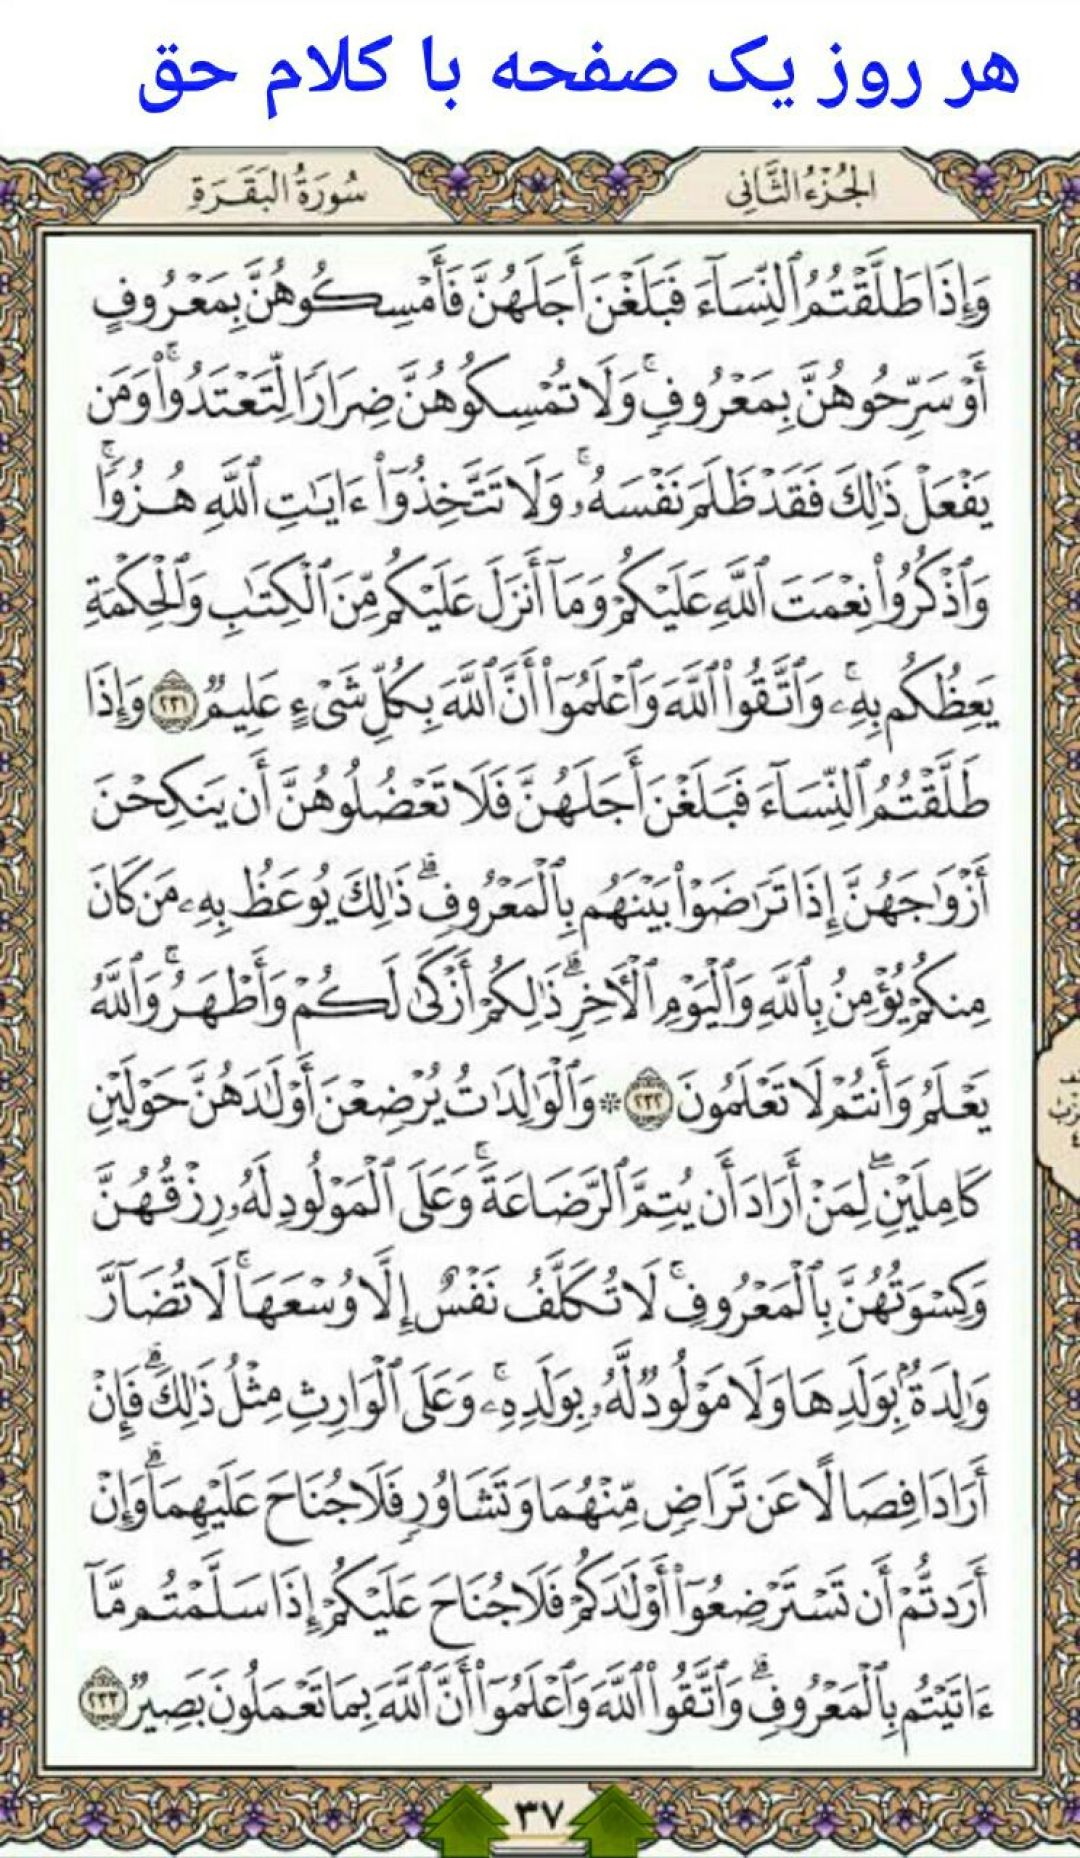 هر روز یک صفحه با کلام حق
الجُزْءُ الثَّانِی
سُورَةُ البَقَرَةِ
وَإِذَا طَلَّقْتُمُ ٱلنِّسَآءَ فَبَلَغْنَ أَجَلَهُنَّ فَأَمْسِكُوهُنَّ بِمَعْرُوفٍ
أَوْ سَرِّحُوهُنَّ بِمَعْرُوفٍۚ وَلَا تُمْسِكُوهُنَّ ضِرَارًا لِّتَعْتَدُوا۟ۚ وَمَن
يَفْعَلْ ذَٰلِكَ فَقَدْ ظَلَمَ نَفْسَهُۥۚ وَلَا تَتَّخِذُوٓا۟ ءَايَٰتِ ٱللَّهِ هُزُوًاۚ
وَٱذْكُرُوا۟ نِعْمَتَ ٱللَّهِ عَلَيْكُمْ وَمَآ أَنزَلَ عَلَيْكُم مِّنَ ٱلْكِتَٰبِ وَٱلْحِكْمَةِ
يَعِظُكُم بِهِۦۚ وَٱتَّقُوا۟ ٱللَّهَ وَٱعْلَمُوٓا۟ أَنَّ ٱللَّهَ بِكُلِّ شَىْءٍ عَلِيمٌ ٢٣١ وَإِذَا
طَلَّقْتُمُ ٱلنِّسَآءَ فَبَلَغْنَ أَجَلَهُنَّ فَلَا تَعْضُلُوهُنَّ أَن يَنكِحْنَ
أَزْوَٰجَهُنَّ إِذَا تَرَٰضَوْا۟ بَيْنَهُم بِٱلْمَعْرُوفِۗ ذَٰلِكَ يُوعَظُ بِهِۦ مَن كَانَ
مِنكُمْ يُؤْمِنُ بِٱللَّهِ وَٱلْيَوْمِ ٱلْءَاخِرِۗ ذَٰلِكُمْ أَزْكَىٰ لَكُمْ وَأَطْهَرُۚ وَٱللَّهُ
يَعْلَمُ وَأَنتُمْ لَا تَعْلَمُونَ ٢٣٢ ۞ وَٱلْوَٰلِدَٰتُ يُرْضِعْنَ أَوْلَٰدَهُنَّ حَوْلَيْنِ
كَامِلَيْنِۖ لِمَنْ أَرَادَ أَن يُتِمَّ ٱلرَّضَاعَةَۚ وَعَلَى ٱلْمَوْلُودِ لَهُۥ رِزْقُهُنَّ
وَكِسْوَتُهُنَّ بِٱلْمَعْرُوفِۚ لَا تُكَلَّفُ نَفْسٌ إِلَّا وُسْعَهَاۚ لَا تُضَآرَّ
وَٰلِدَةٌۢ بِوَلَدِهَا وَلَا مَوْلُودٌ لَّهُۥ بِوَلَدِهِۦۚ وَعَلَى ٱلْوَارِثِ مِثْلُ ذَٰلِكَۗ فَإِنْ
أَرَادَا فِصَالًا عَن تَرَاضٍ مِّنْهُمَا وَتَشَاوُرٍ فَلَا جُنَاحَ عَلَيْهِمَاۗ وَإِنْ
أَرَدتُّمْ أَن تَسْتَرْضِعُوٓا۟ أَوْلَٰدَكُمْ فَلَا جُنَاحَ عَلَيْكُمْ إِذَا سَلَّمْتُم مَّآ
ءَاتَيْتُم بِٱلْمَعْرُوفِۗ وَٱتَّقُوا۟ ٱللَّهَ وَٱعْلَمُوٓا۟ أَنَّ ٱللَّهَ بِمَا تَعْمَلُونَ بَصِيرٌ ٢٣٣
٣٧